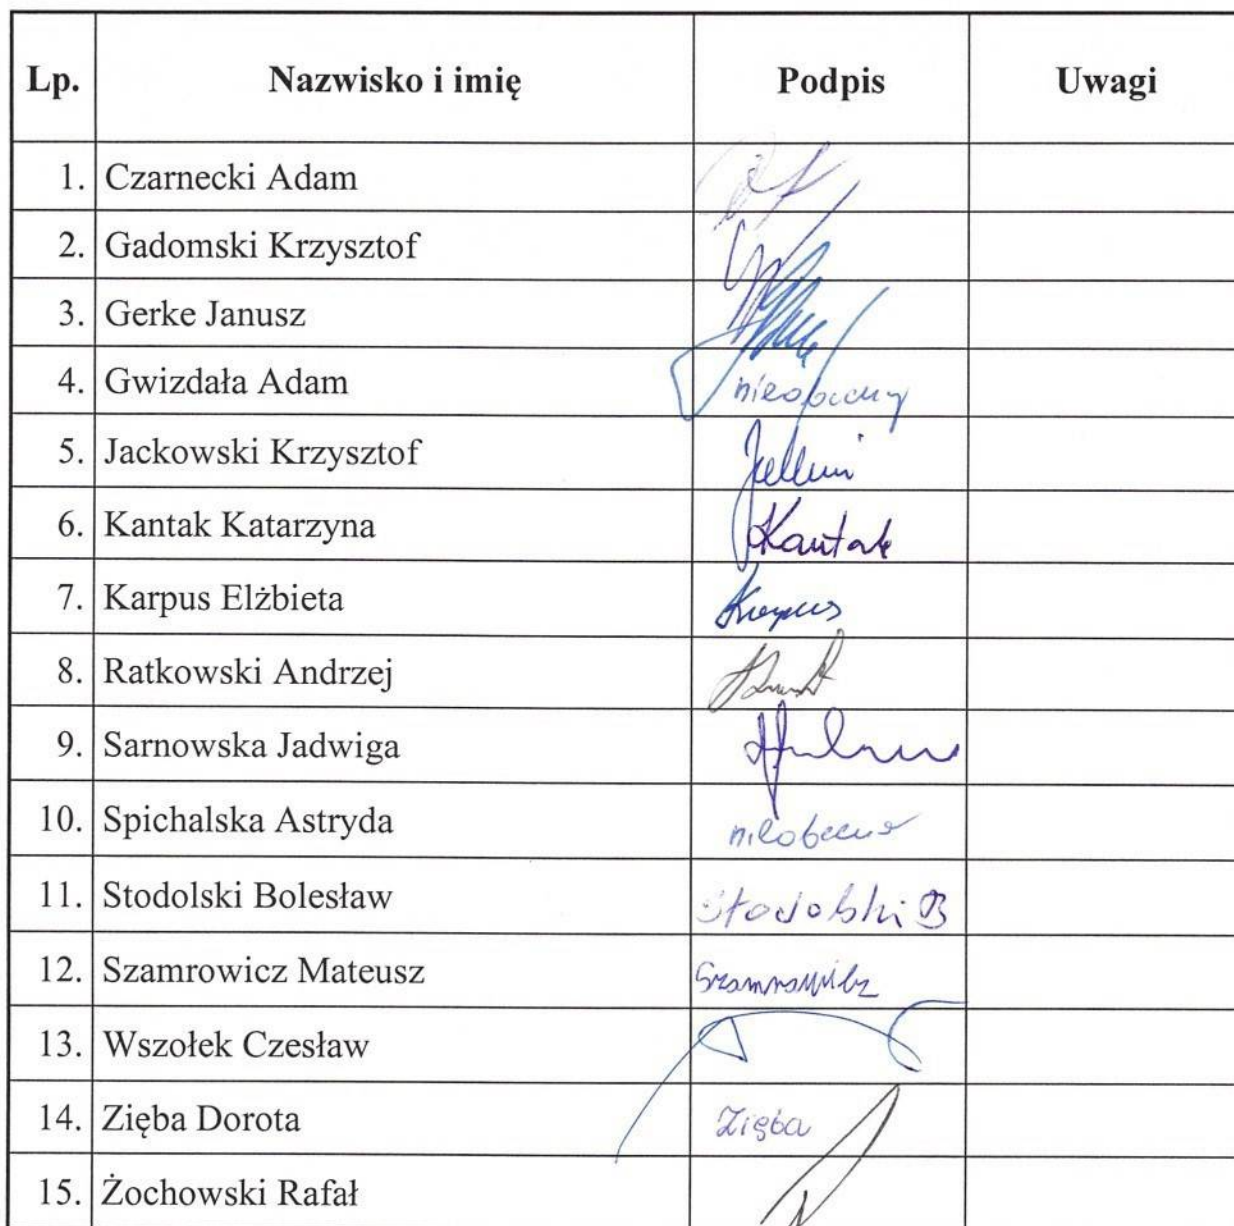 Lp. Nazwisko i imię Podpis Uwagi
1. Czarnecki Adam
2. Gadomski Krzysztof
3. Gerke Janusz
4. Gwizdała Adam nieobecny
5. Jackowski Krzysztof
6. Kantak Katarzyna Kantak
7. Karpus Elżbieta Karpus
8. Ratkowski Andrzej
9. Sarnowska Jadwiga
10. Spichalska Astryda nieobecna
11. Stodolski Bolesław Stodolski B
12. Szamrowicz Mateusz Szamrowicz
13. Wszołek Czesław
14. Zięba Dorota Zięba
15. Żochowski Rafał